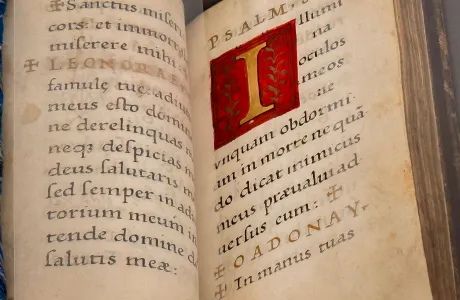 ✠ Sanctus miseri
cors: et immortal
miserere mihi
✠ LEONORAE
famulę tuę: adiu
meus esto domin
ne derelinquas m
neqȝ despicias m
deus salutaris m
sed semper in adiu
torium meum in
tende domine d
salutis meæ:
PSALM.
Illumi
na
oculos
meos
ne
vnquam obdormi-
am in morte ne quā-
do dicat inimicus
meus præualui ad-
uersus eum: ✠
✠ O ADONAY,
✠ In manus tuas